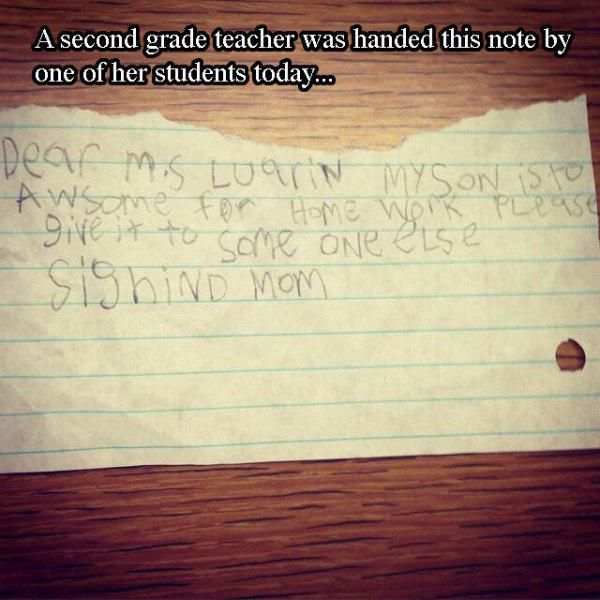 A second grade teacher was handed this note by
one of her students today...
Dear M.S LUARIN MY SON is to
AWSome for Home Work PLease
give it to some one eLse
SighiND MoM